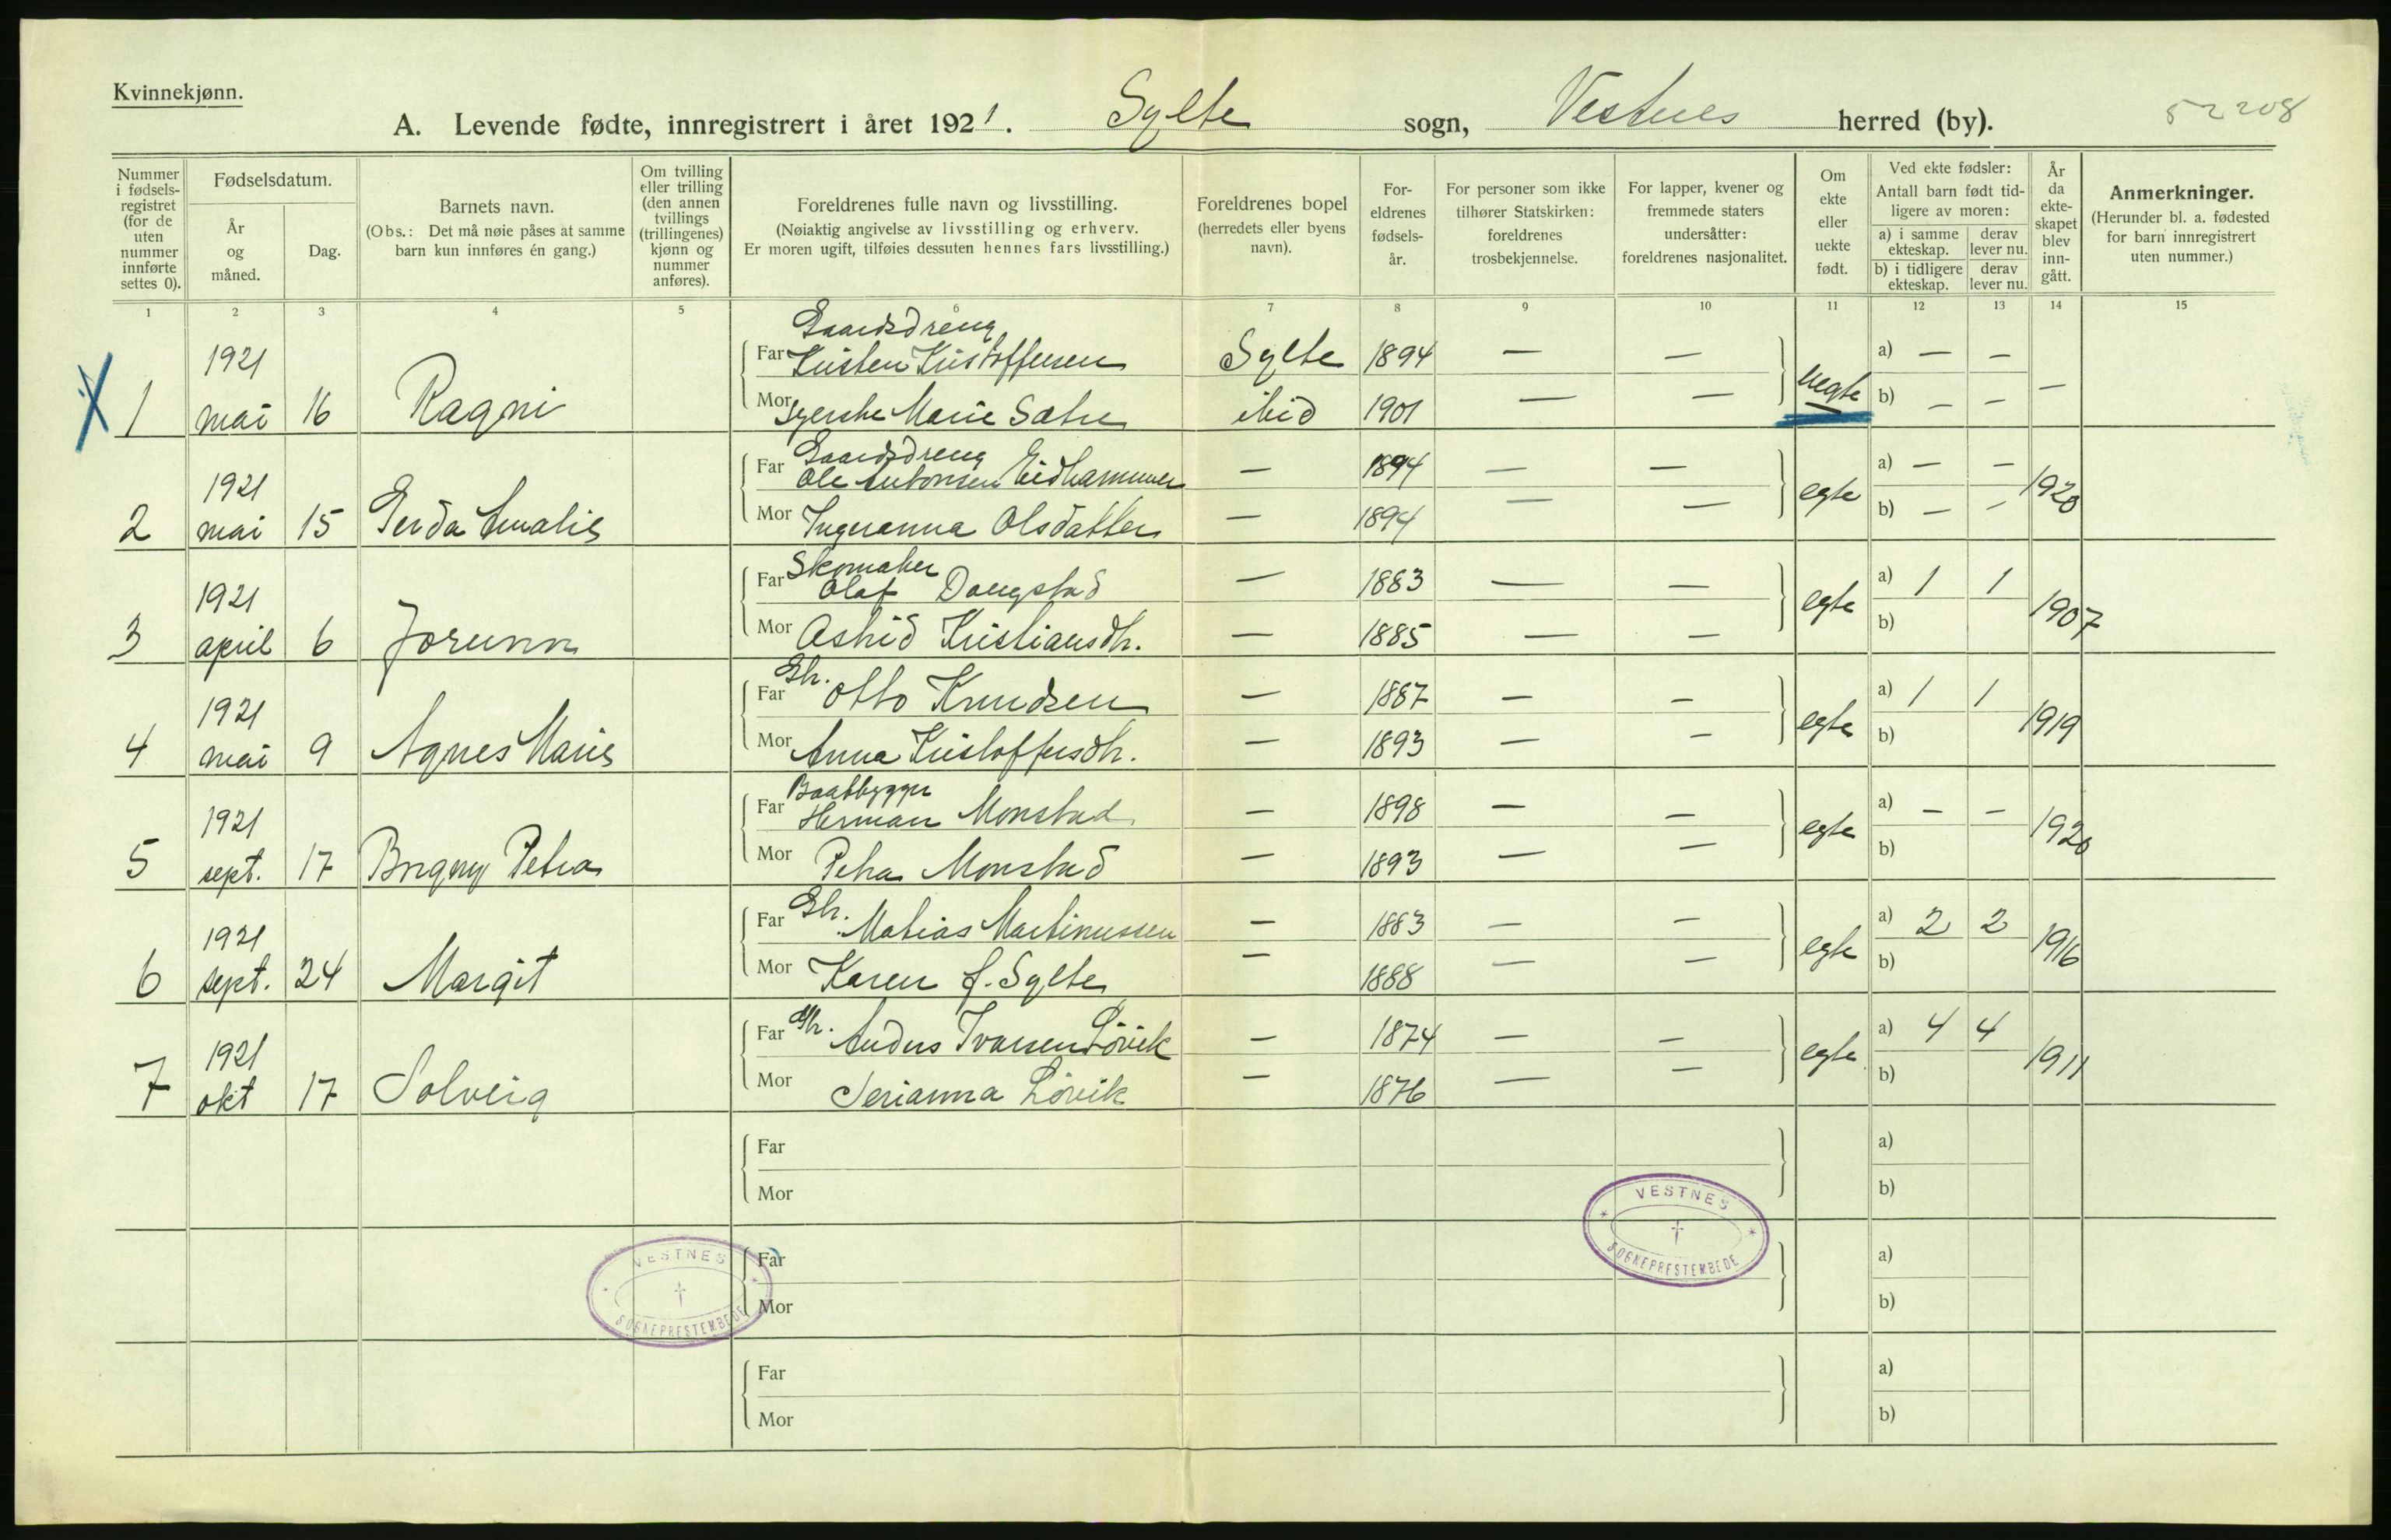 Kvinnekjønn.
A. Levende fødte, innregistrert i året 1921. Sylte sogn, Vestnes herred (by).
52208
Nummer i fødsels-registret (for de uten nummer innførte settes 0).
Fødselsdatum.
År og måned.
Dag.
Barnets navn.
(Obs.: Det må nøie påses at samme barn kun innføres én gang.)
Om tvilling eller trilling (den annen tvillings (trillingenes) kjønn og nummer anføres).
Foreldrenes fulle navn og livsstilling.
(Nøiaktig angivelse av livsstilling og erhverv.
Er moren ugift, tilføies dessuten hennes fars livsstilling.)
Foreldrenes bopel (herredets eller byens navn).
For-eldrenes fødsels-år.
For personer som ikke tilhører Statskirken: foreldrenes trosbekjennelse.
For lapper, kvener og fremmede staters undersåtter: foreldrenes nasjonalitet.
Om ekte eller uekte født.
Ved ekte fødsler:
Antall barn født tid-ligere av moren:
a) i samme ekteskap. derav lever nu.
b) i tidligere ekteskap. derav lever nu.
År da ekte-skapet blev inn-gått.
Anmerkninger.
(Herunder bl. a. fødested for barn innregistrert uten nummer.)
1 2 3 4 5 6 7 8 9 10 11 12 13 14 15
Gaardsdreng
1921 Far Kristen Kristoffersen Sylte 1894 — — a) — —
X 1 mai 16 Ragni Mor Marie Sætre ibid 1901 — — uegte b) — — —
Gaardsdreng
1921 Far Ole Antonsen Eidhammer — 1894 — — a) — —
2 mai 15 Gerda Amalie Mor Ingeranna Olsdatter — 1894 — — egte b) — — 1920
Skomaker
1921 Far Olaf Daugstad — 1883 — — a) 1 1
3 april 6 Jorunn Mor Astrid Kristiansdtr. — 1885 — — egte b) 1907
Gbr.
1921 Far Otto Knudsen — 1887 — — a) 1 1
4 mai 9 Agnes Marie Mor Anna Kristoffersdtr. — 1893 — — egte b) 1919
Baatbygger
1921 Far Herman Monstad — 1898 — — a) — —
5 sept. 17 Brigny Petra Mor Petra Monstad — 1893 — — egte b) 1920
1921 Far Gbr. Matias Martinussen — 1883 — — a) 2 2
6 sept. 24 Margit Mor Karen f. Sylte — 1888 — — egte b) 1916
1921 Far Gbr. Anders Ivarsen Lövik — 1874 — — a) 4 4
7 okt 17 Solveig Mor Serianna Lövik — 1876 — — egte b) 1911
Far a)
Mor b)
Far a)
Mor b)
Far a)
Mor b)
VESTNES
SOGNEPRESTEMBEDE
VESTNES
SOGNEPRESTEMBEDE